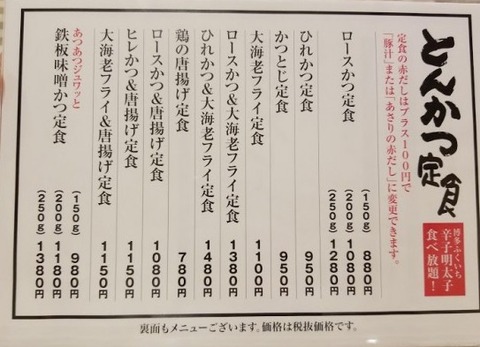 とんかつ定食
博多ふくいち
辛子明太子
食べ放題！
定食の赤だしはプラス100円で
「豚汁」または「あさりの赤だし」に変更できます。
ロースかつ定食 (150g) 880円
(200g) 1080円
(250g) 1280円
ひれかつ定食 950円
かつとじ定食 950円
大海老フライ定食 1100円
ロースかつ&大海老フライ定食 1380円
ひれかつ&大海老フライ定食 1480円
鶏の唐揚げ定食 780円
ロースかつ&唐揚げ定食 1080円
ヒレかつ&唐揚げ定食 1150円
大海老フライ&唐揚げ定食 1150円
あつあつジュワッと
鉄板味噌かつ定食 (150g) 980円
(200g) 1180円
(250g) 1380円
裏面もメニューございます。価格は税抜価格です。